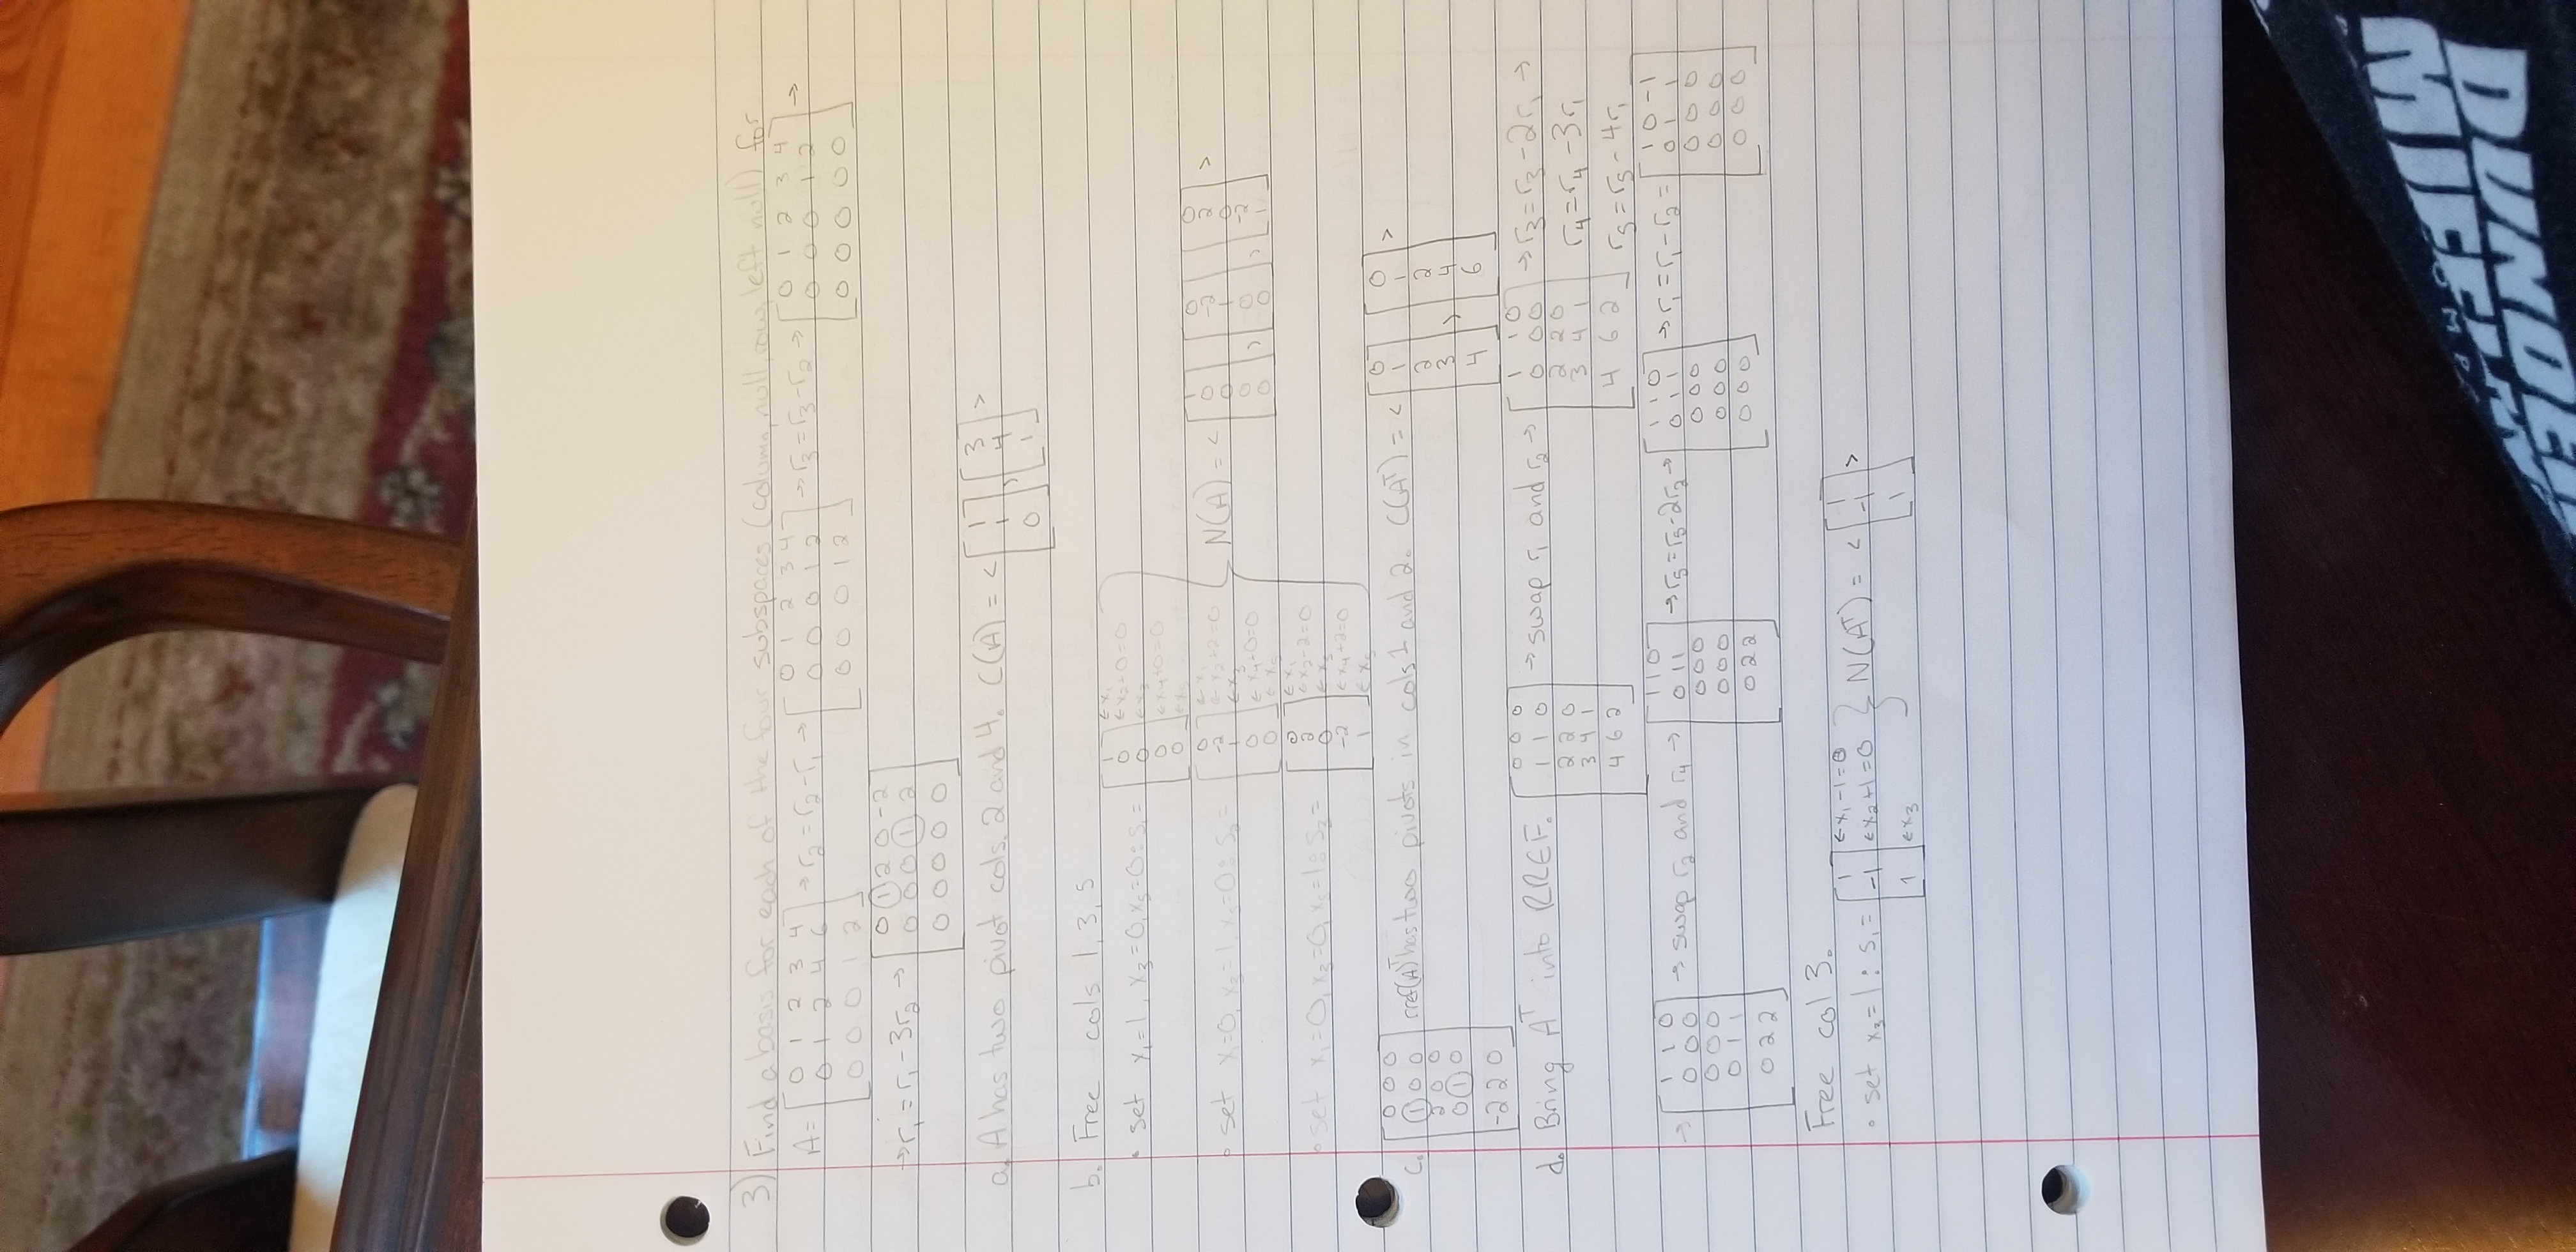 3) Find a basis for each of the four subspaces (column, null, row, left null) for
A = [0 1 2 3 4; 0 1 2 4 6; 0 0 0 1 2] → r₂ = r₂ - r₁ → [0 1 2 3 4; 0 0 0 1 2; 0 0 0 1 2] → r₃ = r₃ - r₂ → [0 1 2 3 4; 0 0 0 1 2; 0 0 0 0 0] →
→ r₁ = r₁ - 3r₂ → [0 1 2 0 -2; 0 0 0 1 2; 0 0 0 0 0]
a. A has two pivot cols. 2 and 4. C(A) = < [1; 1; 0], [3; 4; 1] >
b. Free cols 1, 3, 5
• set x₁=1, x₃=0, x₅=0 : s₁ = [1; 0; 0; 0; 0] ←x₁ ←x₂+0=0 ←x₃ ←x₄+0=0 ←x₅
• set x₁=0, x₃=1, x₅=0 : s₂ = [0; -2; 1; 0; 0] ←x₁ ←x₂+2=0 ←x₃ ←x₄+0=0 ←x₅
N(A) = < [1; 0; 0; 0; 0], [0; -2; 1; 0; 0], [0; 2; 0; -2; 1] >
• set x₁=0, x₃=0, x₅=1 : s₃ = [0; 2; 0; -2; 1] ←x₁ ←x₂-2=0 ←x₃ ←x₄+2=0 ←x₅
c. [0 0 0; 1 0 0; 2 0 0; 0 1 0; -2 2 0] rref(A)ᵀ has two pivots in cols 1 and 2. C(Aᵀ) = < [0; 1; 2; 3; 4], [0; 1; 2; 4; 6] >
d. Bring Aᵀ into RREF. [0 0 0; 1 1 0; 2 2 0; 3 4 1; 4 6 2] → swap r₁ and r₂ → [1 1 0; 0 0 0; 2 2 0; 3 4 1; 4 6 2] → r₃ = r₃ - 2r₁ →
r₄ = r₄ - 3r₁
r₅ = r₅ - 4r₁
→ [1 1 0; 0 0 0; 0 0 0; 0 1 1; 0 2 2] → swap r₂ and r₄ → [1 1 0; 0 1 1; 0 0 0; 0 0 0; 0 2 2] → r₅ = r₅ - 2r₂ → [1 1 0; 0 1 1; 0 0 0; 0 0 0; 0 0 0] → r₁ = r₁ - r₂ = [1 0 -1; 0 1 1; 0 0 0; 0 0 0; 0 0 0]
Free col 3.
• set x₃=1 : s₁ = [1; -1; 1] ←x₁-1=0 ←x₂+1=0 ←x₃ } N(Aᵀ) = < [1; -1; 1] >
DUNDER
MIFFLIN